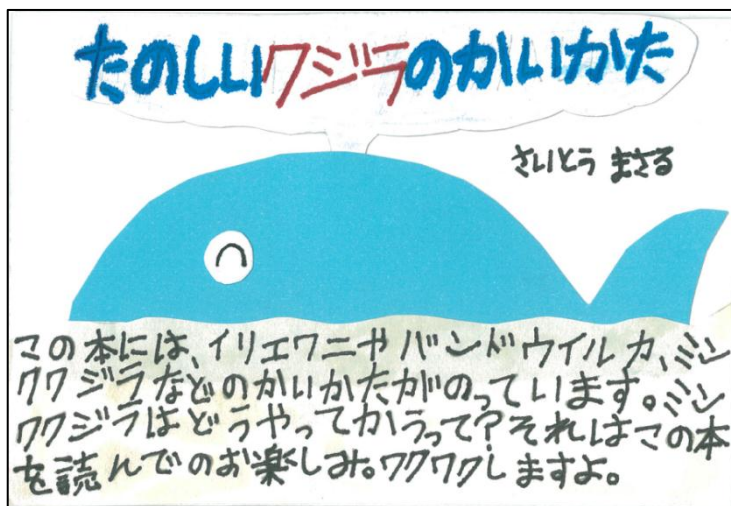 たのしいクジラのかいかた
さいとう まさる
この本には、イリエワニやバンドウイルカ、ミン
ククジラなどのかいかたがのっています。ミン
ククジラはどうやってかうって?それはこの本
を読んでのお楽しみ。ワクワクしますよ。